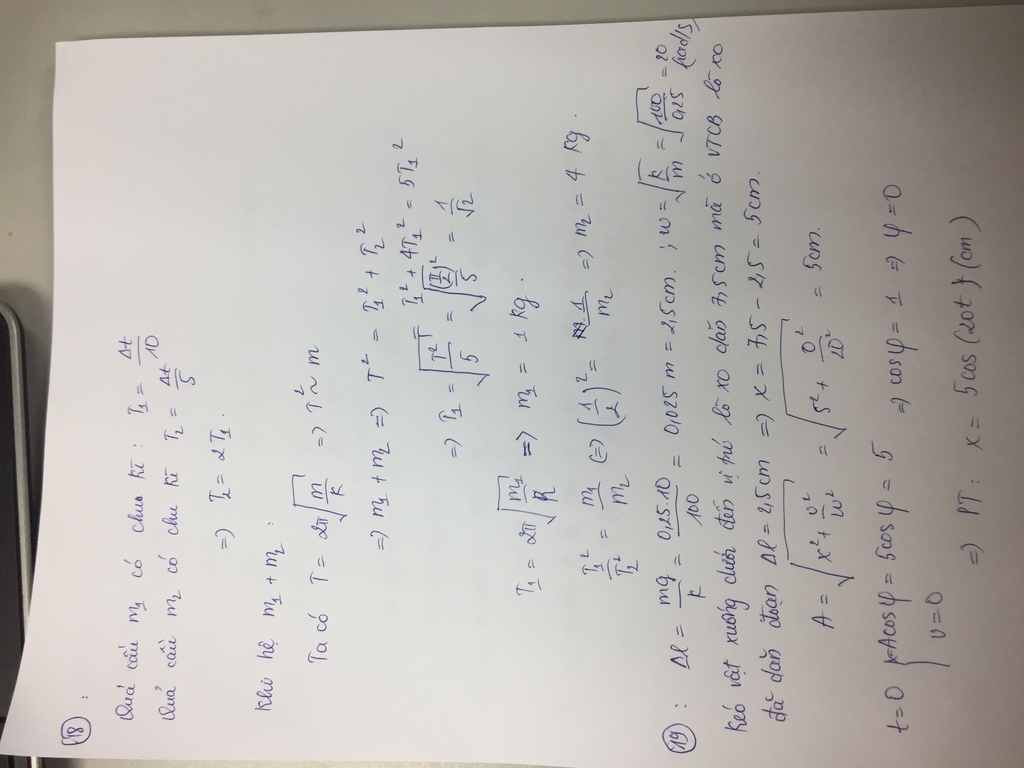 18 :
Quả cầu m₁ có chu kì : T₁ = Δt/10
Quả cầu m₂ có chu kì T₂ = Δt/5
=) T₂ = 2T₁.
Khi hệ m₁ + m₂ :
Ta có T = 2π√(m/k) => T² ~ m
=) m₁ + m₂ => T² = T₁² + T₂²
T₁² + 4T₁² = 5T₁²
=) T₁ = √(T²/5) = = 1/√2
T₁ = 2π√(m₁/k) => m₁ = 1 kg.
T₁²/T₂² = m₁/m₂ (=) (1/2)² = 1/m₂ => m₂ = 4 kg.
19 : Δl = mg/k = 0,25.10/100 = 0,025 m = 2,5cm. ; w = √(k/m) = √(100/0,25) = 20 (rad/s)
Kéo vật xuống dưới đến vị trí lò xo dãn 7,5cm mà ở VTCB lò xo
đã dãn đoạn Δl = 2,5cm => x = 7,5 - 2,5 = 5cm.
A = √(x² + v²/w²) = √(5² + 0²/20²) = 5cm.
t=0 { x=Acosφ = 5cosφ = 5 => cosφ = 1 => φ=0
v=0
=) PT : x = 5cos(20t) (cm)